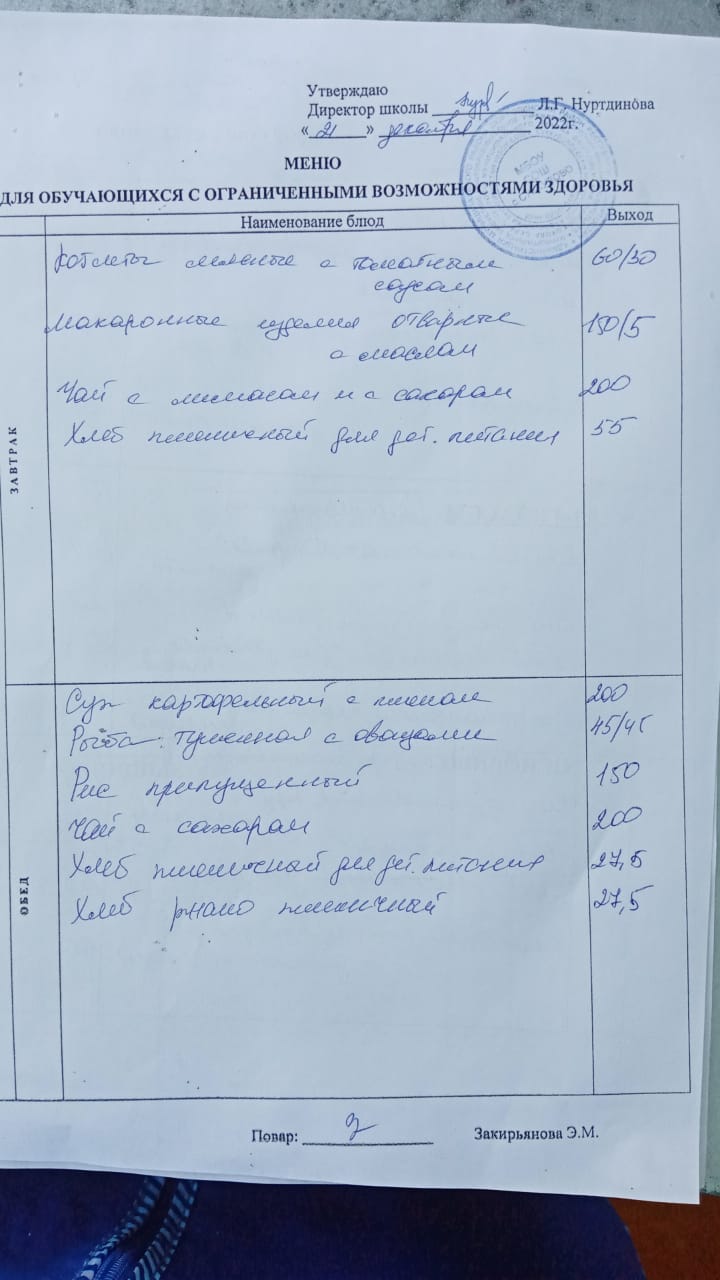 Утверждаю
Директор школы Л.Г. Нуртдинова
«21» декабря 2022г.
МЕНЮ
ДЛЯ ОБУЧАЮЩИХСЯ С ОГРАНИЧЕННЫМИ ВОЗМОЖНОСТЯМИ ЗДОРОВЬЯ
Наименование блюд Выход
ЗАВТРАК
Котлеты мясные с томатным 60/30
соусом
Макаронные изделия отварные 150/5
с маслом
Чай с лимоном и с сахаром 200
Хлеб пшеничный для дет. питания 55
ОБЕД
Суп картофельный с пшеном 200
Рыба тушенная с овощами 45/45
Рис припущенный 150
Чай с сахаром 200
Хлеб пшеничный для дет. питания 27,5
Хлеб ржано пшеничный 27,5
Повар: Закирьянова Э.М.